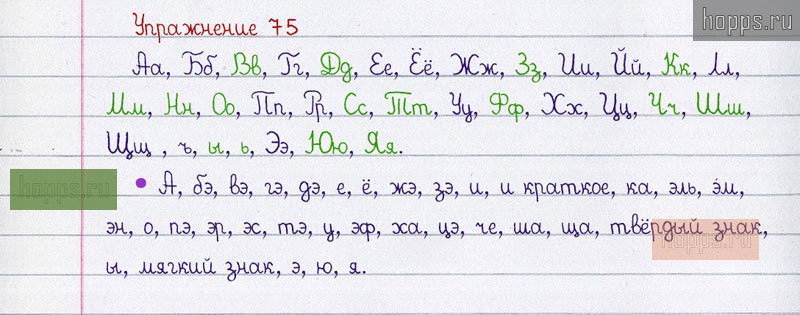 hopps.ru
Упражнение 75
Аа, Бб, Вв, Гг, Дд, Ее, Ёё, Жж, Зз, Ии, Йй, Кк, Лл,
Мм, Нн, Оо, Пп, Рр, Сс, Тт, Уу, Фф, Хх, Цц, Чч, Шш,
Щщ , ъ, ы, ь, Ээ, Юю, Яя.
hopps.ru
• А, бэ, вэ, гэ, дэ, е, ё, жэ, зэ, и, и краткое, ка, эль, эм,
эн, о, пэ, эр, эс, тэ, у, эф, ха, цэ, че, ша, ща, твёрдый знак,
hopps.ru
ы, мягкий знак, э, ю, я.